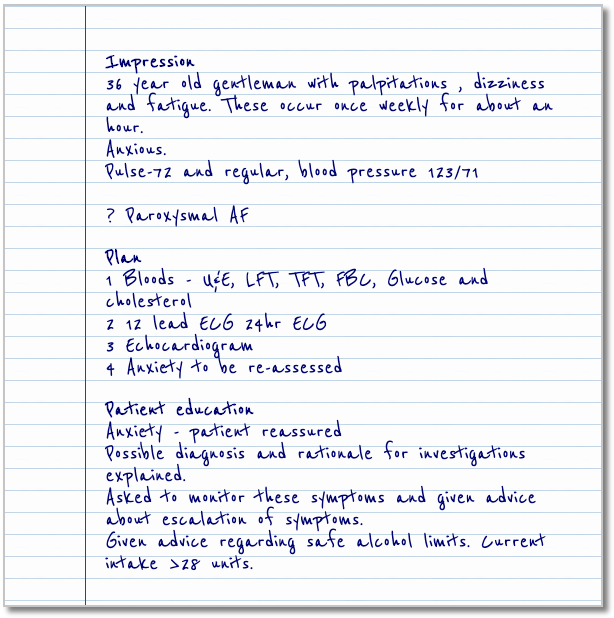 Impression
36 year old gentleman with palpitations , dizziness
and fatigue. These occur once weekly for about an
hour.
Anxious.
Pulse-72 and regular, blood pressure 123/71
? Paroxysmal AF
Plan
1 Bloods - U&E, LFT, TFT, FBC, Glucose and
cholesterol
2 12 lead ECG 24hr ECG
3 Echocardiogram
4 Anxiety to be re-assessed
Patient education
Anxiety - patient reassured
Possible diagnosis and rationale for investigations
explained.
Asked to monitor these symptoms and given advice
about escalation of symptoms.
Given advice regarding safe alcohol limits. Current
intake >28 units.